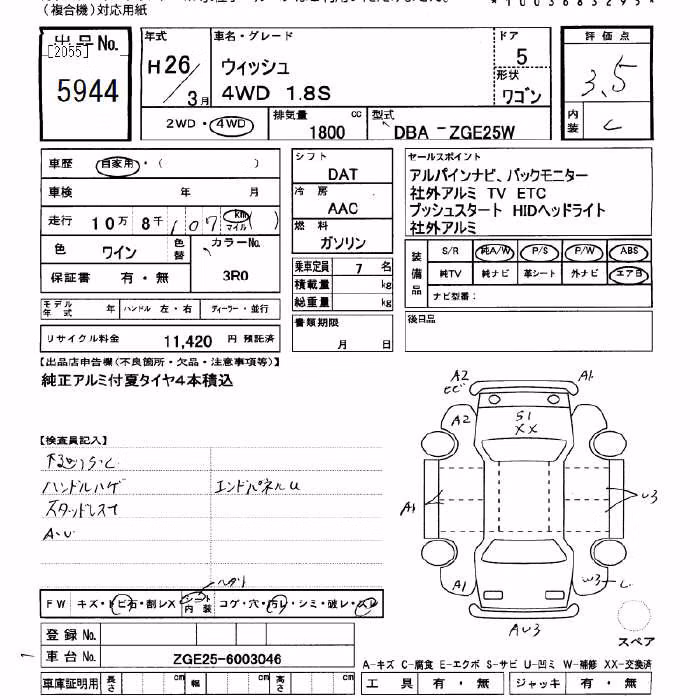 (複合機)対応用紙
*1003683295*
出品No.
[2055]
5944
年式
H26/3月
車名・グレード
ウィッシュ
4WD 1.8S
ドア
5
形状
ワゴン
評価点
3.5
内装
C
2WD・4WD
排気量
1800 cc
型式
DBA-ZGE25W
車歴 自家用・( )
車検 年 月
走行 10万 8千 107 km マイル ( )
色 ワイン 色替 カラーNo. 3R0
保証書 有・無
モデル年式 年 ハンドル 左・右 ディーラー・並行
リサイクル料金 11,420 円 預託済
シフト
DAT
冷房
AAC
燃料
ガソリン
乗車定員 7 名
積載量 kg
総重量 kg
書類期限
月 日
セールスポイント
アルパインナビ、バックモニター
社外アルミ TV ETC
プッシュスタート HIDヘッドライト
社外アルミ
装備品
S/R 純A/W P/S P/W ABS
純TV 純ナビ 革シート 外ナビ エアB
ナビ型番:
後日品
【出品店申告欄(不良箇所・欠品・注意事項等)】
純正アルミ付夏タイヤ4本積込
【検査員記入】
ハンドルハゲ エンドパネルU
スタッドレス
A・U
FW キズ・トビ石・割レX シート内装 コゲ・穴・汚レ・シミ・破レ・スレ
登録No.
車台No. ZGE25-6003046
車庫証明用 長さ cm 幅 cm 高さ cm
A2
A1
A2
S1
XX
A1
U3
A1
W3
AU3
スペア
A-キズ C-腐食 E-エクボ S-サビ U-凹ミ W-補修 XX-交換済
工具 有・無 ジャッキ 有・無